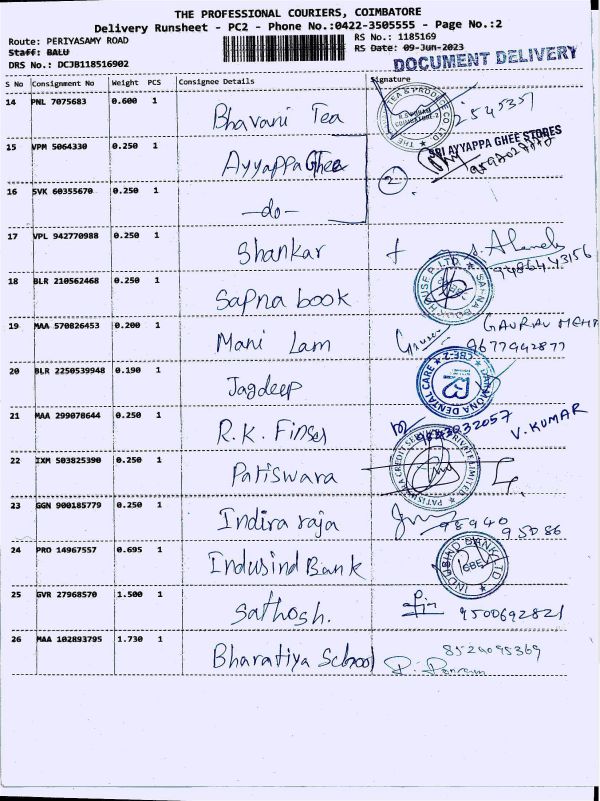 THE PROFESSIONAL COURIERS, COIMBATORE
Delivery Runsheet - PC2 - Phone No.:0422-3505555 - Page No.:2
Route: PERIYASAMY ROAD
Staff: BALU
DRS No.: DCJB118516902
RS No.: 1185169
RS Date: 09-Jun-2023
DOCUMENT DELIVERY
S No Consignment No Weight PCS Consignee Details Signature
14 PNL 7075683 0.600 1 Bhavani Tea 2545357
15 VPM 5064330 0.250 1 Ayyappa Ghee SRI AYYAPPA GHEE STORES
16 SVK 60355670 0.250 1 -do- 2
17 VPL 942770988 0.250 1 Shankar 9486443156
18 BLR 210562468 0.250 1 Sapna book
19 MAA 570826453 0.200 1 Mani Lam GAURAV MEHT
9677442877
20 BLR 2250539948 0.190 1 Jagdeep DAIMONA DENTAL CARE CBE-2
21 MAA 299078644 0.250 1 R.K. Finser V. KUMAR
22 IXM 503825390 0.250 1 Patiswara
23 GGN 900185779 0.250 1 Indira raja 98940
95086
24 PRO 14967557 0.695 1 Indusind Bank INDUSIND BANK LTD CBE
25 GVR 27968570 1.500 1 Sathosh. 9500692821
26 MAA 102893795 1.730 1 Bharatiya School 8524095369